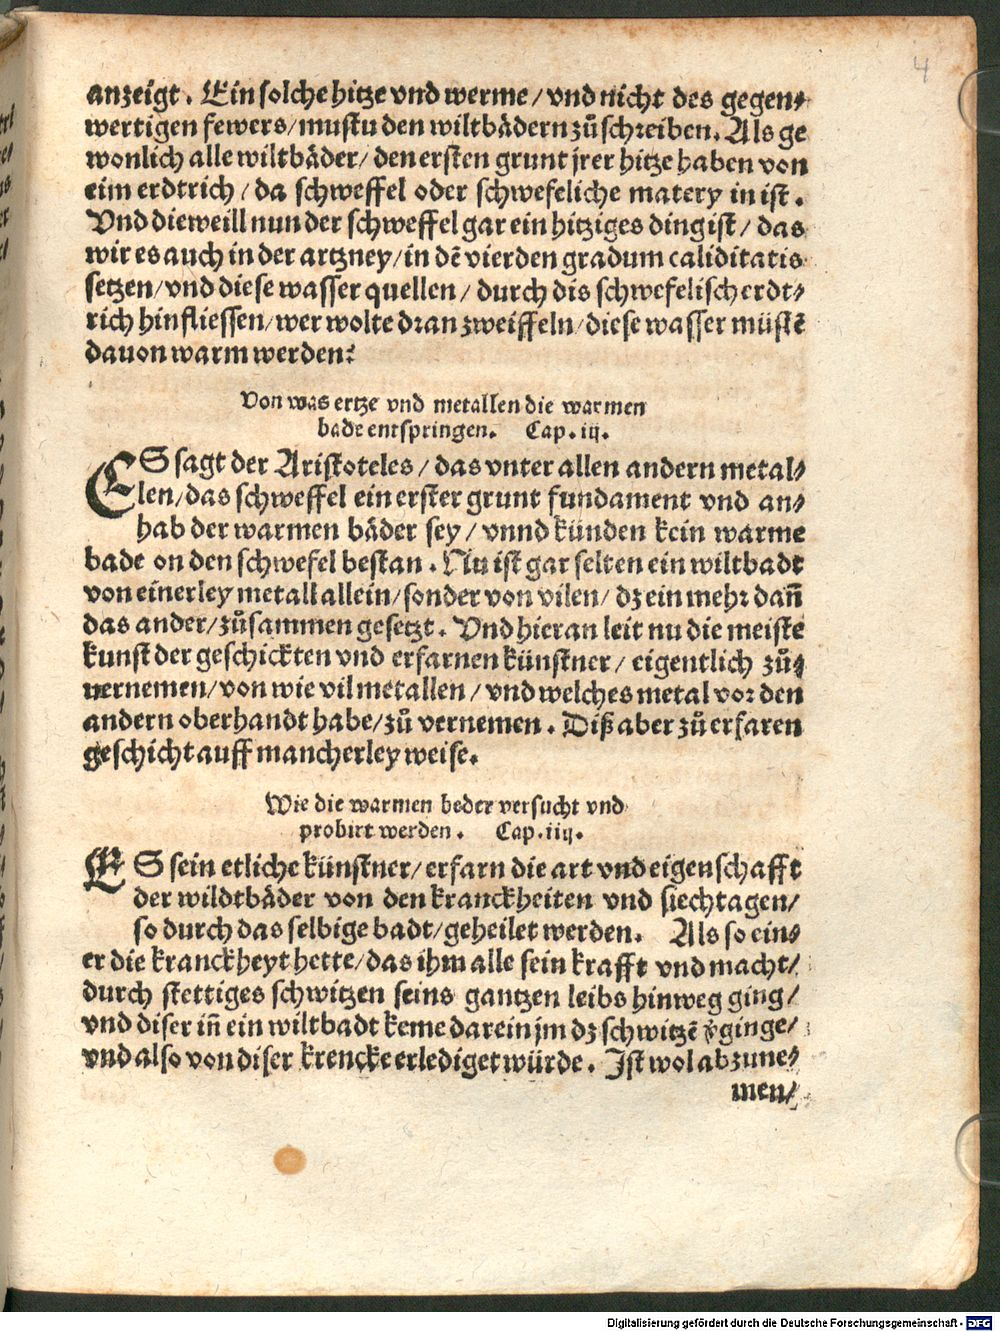 4
anzeigt. Ein solche hitze vnd werme/ vnd nicht des gegen⸗
wertigen fewers/ mustu den wiltbådern zů schreiben. Als ge
wonlich alle wiltbåder/ den ersten grunt jrer hitze haben von
eim erdtrich/ da schweffel oder schwefeliche matery in ist.
Vnd dieweill nun der schweffel gar ein hitziges ding ist/ das
wir es auch in der artzney/ in dẽ vierden gradum caliditatis
setzen/ vnd diese wasser quellen/ durch dis schwefelisch erdt⸗
rich hin fliessen/ wer wolte dran zweiffeln/ diese wasser müstẽ
dauon warm werden?
Von was ertze vnd metallen die warmen
bade entspringen. Cap. iij.
ES sagt der Aristoteles/ das vnter allen andern metal⸗
len/ das schweffel ein erster grunt fundament vnd an⸗
hab der warmen båder sey/ vnnd künden kein warme
bade on den schwefel bestan. Nu ist gar selten ein wiltbadt
von einerley metall allein/ sonder von vilen/ dz ein mehr dañ
das ander/ zůsammen gesetzt. Vnd hieran leit nu die meiste
kunst der geschickten vnd erfarnen künstner/ eigentlich zů⸗
uernemen/ von wie vil metallen/ vnd welches metal vor den
andern oberhandt habe/ zů vernemen. Diß aber zů erfaren
geschicht auff mancherley weise.
Wie die warmen beder versucht vnd
probirt werden. Cap. iiij.
ES sein etliche künstner/ erfarn die art vnd eigenschafft
der wildtbåder von den kranckheiten vnd siechtagen/
so durch das selbige badt/ geheilet werden. Als so ein⸗
er die kranckheyt hette/ das ihm alle sein krafft vnd macht/
durch stettiges schwitzen seins gantzen leibs hinweg ging/
vnd diser iñ ein wiltbadt keme darein jm dz schwitzẽ v̊ginge/
vnd also von diser krencke erlediget würde. Ist wol abzune⸗
men/
Digitalisierung gefördert durch die Deutsche Forschungsgemeinschaft - DFG